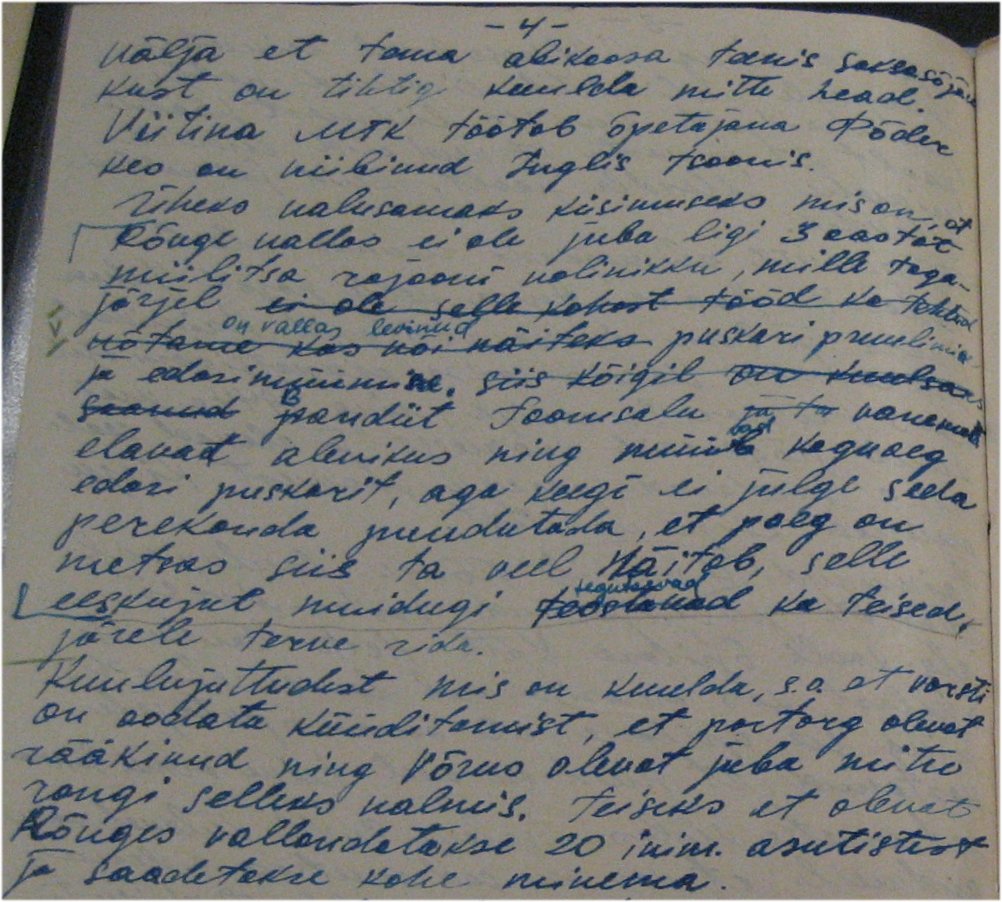 - 4 -
välja et tema abikaasa teenis saksasõjaväes
kust on tihtig kuulda mitte head.
Viitina MTK töötab õpetajana Põder
kes on viibinud Inglis tsoonis.
Üheks valusamaks küsimuseks mis on, et
Rõuge vallas ei ole juba ligi 3 aastat
miilitsa rajooni volinikku, mille taga-
järjel ei ole selle kohast tööd ka tehtud
on vallas levinud
võtame kas või näiteks puskari pruulimine
ja edasimüümine. siis kõigil on kuulsas
saanud Bandiit Toomsalu ja ta vanemad
elavad alevikus ning müüvad kogu aeg
edasi puskarit, aga keegi ei julge seda
perekonda puudutada, et poeg on
metsas siis ta veel Näitab, selle
eeskujul muidugi teostavad ka teised,
järele terve rida.
Kuulujuttudest mis on kuulda, s.o. et varsti
on oodata küüditamist, et partorg olevat
rääkinud ning Võrus olevat juba mitu
rongi selleks valmis. Teiseks et olevat
Rõuges vallandatakse 20 inim. asutistest
ja saadetakse kohe minema.